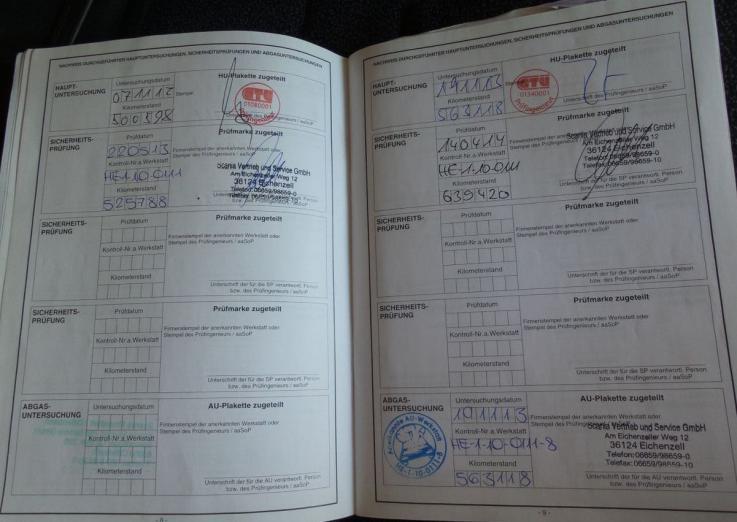 NACHWEIS DURCHGEFÜHRTER HAUPTUNTERSUCHUNGEN, SICHERHEITSPRÜFUNGEN UND ABGASUNTERSUCHUNGEN
HAUPT-
UNTERSUCHUNG
Untersuchungsdatum
071112
Kilometerstand
500598
HU-Plakette zugeteilt
Stempel
GTÜ
Prüfingenieur
SICHERHEITS-
PRÜFUNG
Prüfdatum
220513
Kontroll-Nr.a.Werkstatt
HE-1-10-0111
Kilometerstand
525788
Prüfmarke zugeteilt
Firmenstempel der anerkannten Werkstatt oder
Stempel des Prüfingenieurs / aaSoP
Scania Vertrieb und Service GmbH
Am Eichenzeller Weg 12
36124 Eichenzell
Telefon: 06659/98659-0
Telefax: 06659/98659-10
SICHERHEITS-
PRÜFUNG
Prüfdatum
Kontroll-Nr.a.Werkstatt
Kilometerstand
Prüfmarke zugeteilt
Firmenstempel der anerkannten Werkstatt oder
Stempel des Prüfingenieurs / aaSoP
Unterschrift der für die SP verantwortl. Person
bzw. des Prüfingenieurs / aaSoP
SICHERHEITS-
PRÜFUNG
Prüfdatum
Kontroll-Nr.a.Werkstatt
Kilometerstand
Prüfmarke zugeteilt
Firmenstempel der anerkannten Werkstatt oder
Stempel des Prüfingenieurs / aaSoP
Unterschrift der für die SP verantwortl. Person
bzw. des Prüfingenieurs / aaSoP
ABGAS-
UNTERSUCHUNG
Untersuchungsdatum
Kontroll-Nr.a.Werkstatt
Kilometerstand
AU-Plakette zugeteilt
Firmenstempel der anerkannten Werkstatt oder
Stempel des Prüfingenieurs / aaSoP
Unterschrift der für die AU verantwortl. Person
bzw. des Prüfingenieurs / aaSoP
- 8 -
NACHWEIS DURCHGEFÜHRTER HAUPTUNTERSUCHUNGEN, SICHERHEITSPRÜFUNGEN UND ABGASUNTERSUCHUNGEN
HAUPT-
UNTERSUCHUNG
Untersuchungsdatum
191113
Kilometerstand
563118
HU-Plakette zugeteilt
GTÜ
01340001
Prüfingenieur
Unterschrift des Prüfingenieurs / aaSoP
SICHERHEITS-
PRÜFUNG
Prüfdatum
140414
Kontroll-Nr.a.Werkstatt
HE-1-10-0111
Kilometerstand
639420
Prüfmarke zugeteilt
Firmenstempel der anerkannten Werkstatt oder
Stempel des Prüfingenieurs / aaSoP
Scania Vertrieb und Service GmbH
Am Eichenzeller Weg 12
36124 Eichenzell
Telefon: 06659/98659-0
Telefax: 06659/98659-10
SICHERHEITS-
PRÜFUNG
Prüfdatum
Kontroll-Nr.a.Werkstatt
Kilometerstand
Prüfmarke zugeteilt
Firmenstempel der anerkannten Werkstatt oder
Stempel des Prüfingenieurs / aaSoP
Unterschrift der für die SP verantwortl. Person
bzw. des Prüfingenieurs / aaSoP
SICHERHEITS-
PRÜFUNG
Prüfdatum
Kontroll-Nr.a.Werkstatt
Kilometerstand
Prüfmarke zugeteilt
Firmenstempel der anerkannten Werkstatt oder
Stempel des Prüfingenieurs / aaSoP
Unterschrift der für die SP verantwortl. Person
bzw. des Prüfingenieurs / aaSoP
ABGAS-
UNTERSUCHUNG
Anerkannte AU-Werkstatt
HE-1-10-0111-8
Untersuchungsdatum
191113
Kontroll-Nr.a.Werkstatt
HE-1-10-0111-8
Kilometerstand
563118
AU-Plakette zugeteilt
Firmenstempel der anerkannten Werkstatt oder
Stempel des Prüfingenieurs / aaSoP
Scania Vertrieb und Service GmbH
Am Eichenzeller Weg 12
36124 Eichenzell
Telefon: 06659/98659-0
Telefax: 06659/98659-10
bzw. des Prüfingenieurs / aaSoP
- 9 -